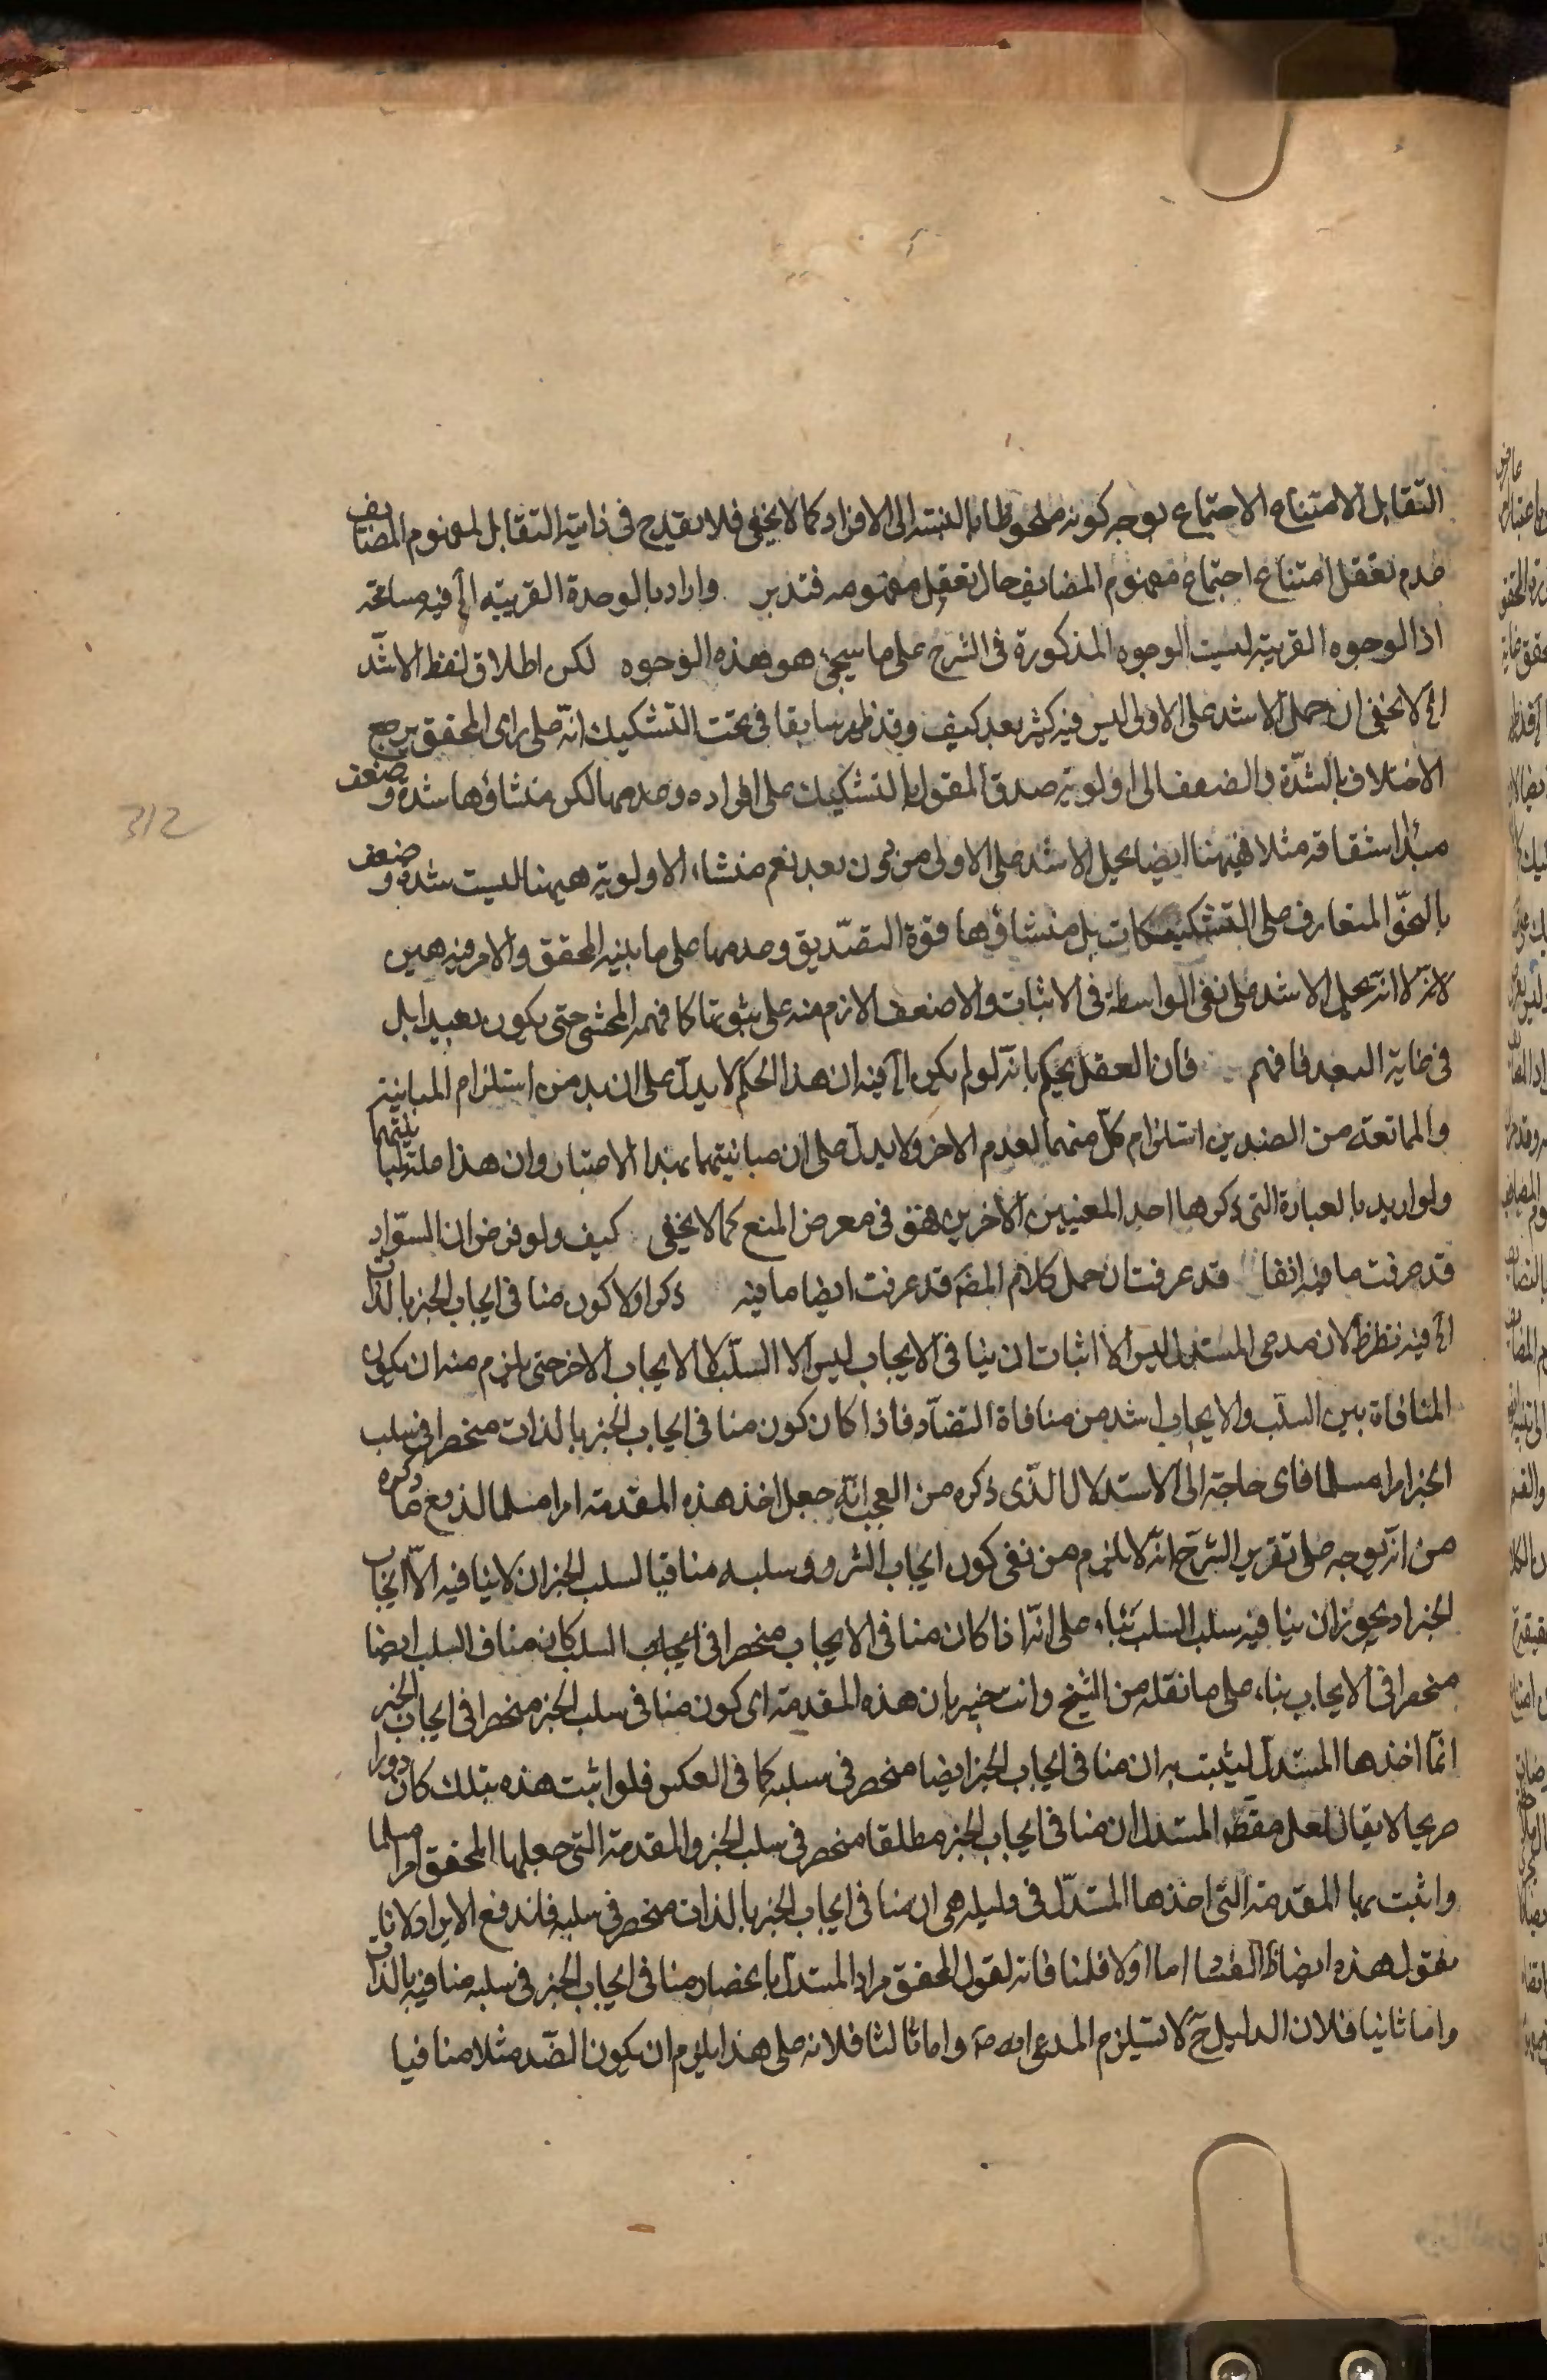 التقابل الامتناع الاجتماع بوجه كونه ملحوظا بالنسبة الى الافراد كما لا يخفى فلا يقدح فى ذاتية التقابل لمفهوم المضايف
عدم تعقل امتناع اجتماع مفهوم المضايف حال تعقل مفهومه فتدبر وارادبالوحدة القريبة الخ فيه مسامحة
اذ الوجوه القريبة ليست الوجوه المذكورة فى الشرح على ما سيجئ هو هذه الوجوه لكن اطلاق لفظ الاشد
الخ لا يخفى ان حمل الاشد على الاولى ليس فيه كثير بعد كيف وقد ظهر سابقا فى بحث التشكيك انه على راى المحقق يرجع
الاختلاف بالشدة والضعف الى اولوية صدق المقول بالتشكيك على افراده وعدمها لكن منشاؤها شدة وضعف
مبدا اشتقاقه مثلا فيهنا ايضا يحمل الاشد على الاولى من دون بعد نعم منشاء الاولوية هيهنا ليست شدة وضعف
بالنحو المتعارف على التشكيكات بل منشاؤها قوة التصديق وعدمها على ما بينه المحقق والامر فيه هين
لانه لا انه يحمل الاشد على نفى الواسطة فى الاثبات والاضعف الازم منه على ثبوتها كما فهمه المحشى حتى يكون بعيدا بل
فى غاية البعد فافهم فان العقل يحكم بانه لو لم يكن الخ فيه ان هذا الحكم لا يدل على ان بد من استلزام المباينة
والممانعة من الضدين استلزام كل منهما لعدم الاخر ولا يدل على ان مباينتهما بهذا الاعتبار وان هذا
ولو اريد بالعبارة التى ذكرها احد المعنيين الاخرين فهو فى معرض المنع كما لا يخفى كيف ولو فرض ان السواد
قد عرفت ما فيه انفا قد عرفت ان حمل كلام المصَ قد عرفت ايضا ما فيه ذكر اولا كون منافى ايجاب الخير بالذات
الخ فيه نظر لان مدعى المستدل ليس الا اثبات ان ينافى الايجاب ليس الا السلب لا الايجاب الاخر حتى يلزم منه ان يكون
المنافاة بين السلب والايجاب اشد من منافاة التضاد فاذا كان كون منافى ايجاب الخير بالذات منحصرا فى سلب
الخير امرا مسلما فاى حاجة الى الاستدلال الذى ذكره من العجب انه جعل اخذ هذه المقدمة امرا مسلما لدفع ما ذكره
من انه يوجه على تقرير الشرح انه لا يلزم من نفى كون ايجاب الشر وسلبه منافيا لسلب الخير ان لا ينافيه الا ايجاب
الخير اذ يجوز ان ينافيه سلب السلب بناء على انه اذا كان منافى الايجاب منحصرا فى ايجاب السلب كان منافى السلب ايضا
منحصرا فى الايجاب بناء على ما نقله من الشيخ وانت خبير بان هذه المقدمة اى كون منافى سلب الخير منحصرا فى ايجاب الخير
انما اخذها المستدل ليثبت به ان منافى ايجاب الخير ايضا منحصر فى سلبه كما فى العكس فلو اثبت هذه بتلك كان دورا
صريحا لا يقال لعل مقصَ المستدل ان منافى ايجاب الخير مطلقا منحصر فى سلب الخير والمقدمة التى جعلها المحقق امرا مسلما
واثبت بها المقدمة التى اخذها المستدل فى دليله هى ان منافى ايجاب الخير بالذات منحصر فى سلبه فاندفع الايراد لانا
نقول هذه ايضا ظَ الفساد اما اولا فلنا فاته لقول المحقق مراد المستدل بانحصار منافى ايجاب الخير فى سلبه منافيه بالذات
واما ثانيا فلان الدليل حَ لا يستلزم المدعى واما ثالثا فلانه على هذا يلزم ان يكون الضد مثلا منافيا
312